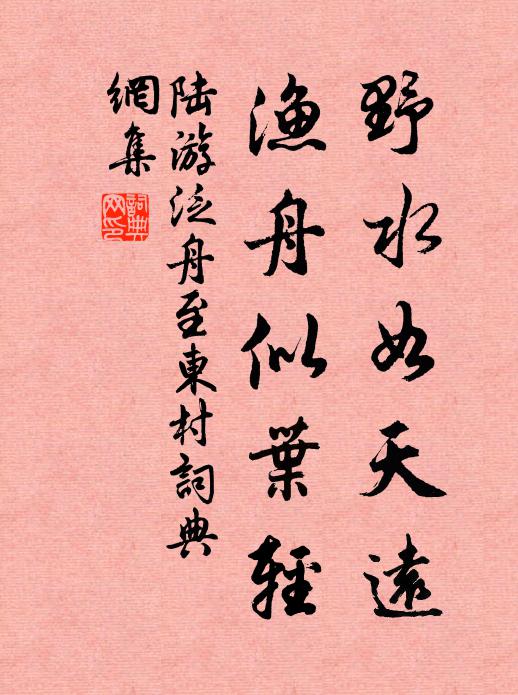 野水如天遠
漁舟似葉輕
陆游泛舟至東村詞典
網集
詞典
网印